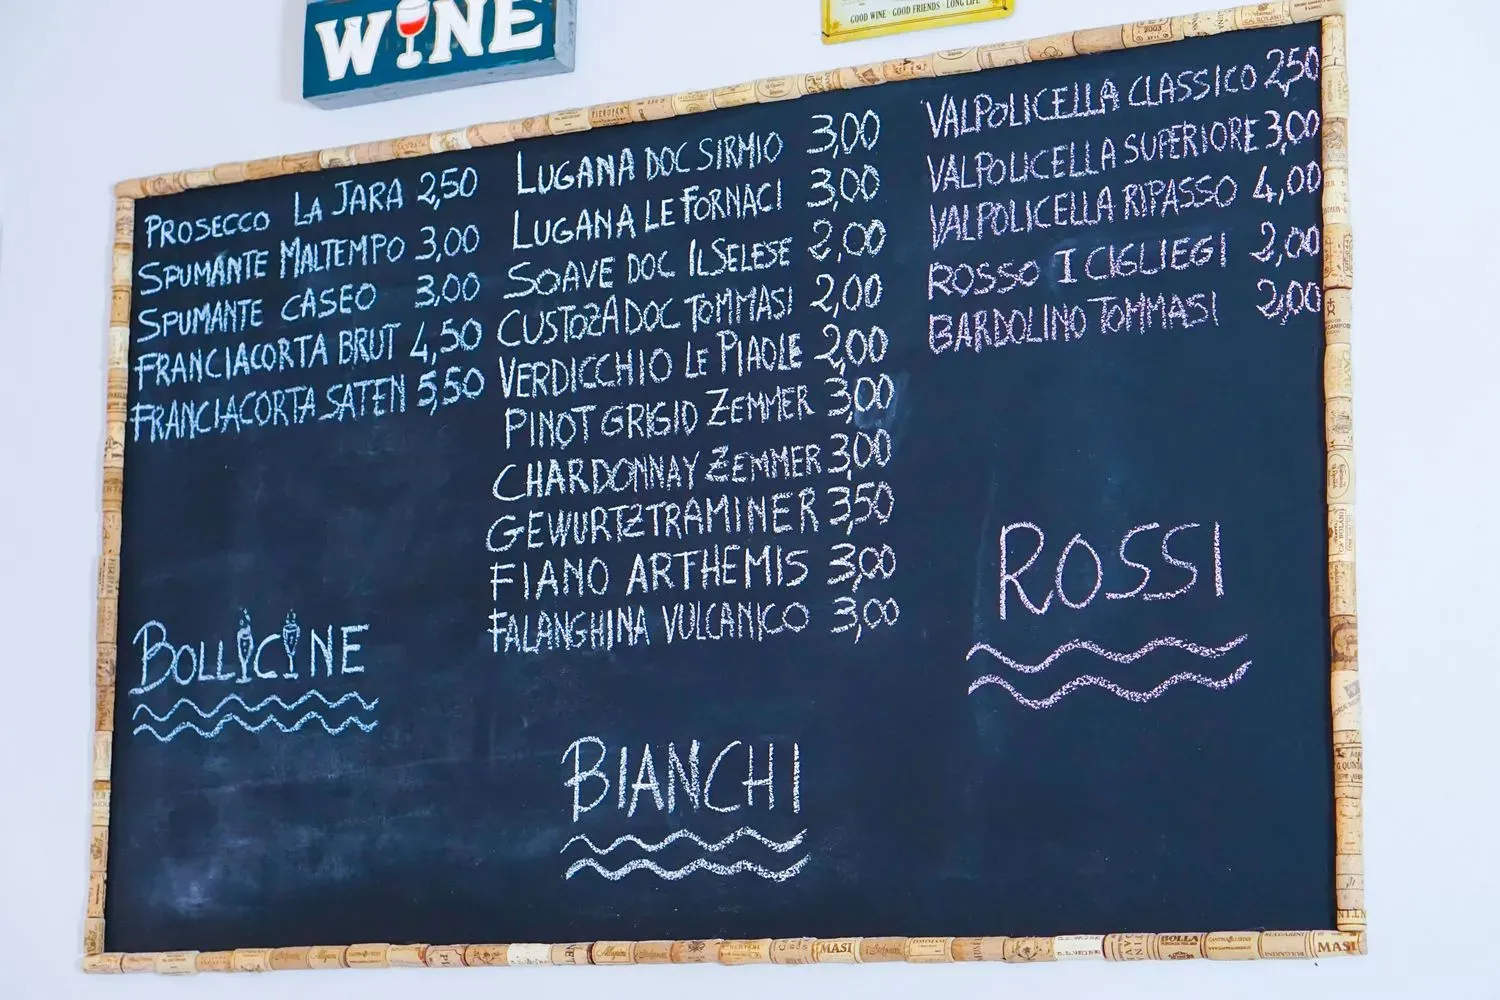 WINE
GOOD WINE · GOOD FRIENDS · LONG LIFE
PROSECCO LA JARA 2,50
SPUMANTE MALTEMPO 3,00
SPUMANTE CASEO 3,00
FRANCIACORTA BRUT 4,50
FRANCIACORTA SATEN 5,50
BOLLICINE
LUGANA DOC SIRMIO 3,00
LUGANA LE FORNACI 3,00
SOAVE DOC IL SELESE 2,00
CUSTOZA DOC TOMMASI 2,00
VERDICCHIO LE PIAOLE 2,00
PINOT GRIGIO ZEMMER 3,00
CHARDONNAY ZEMMER 3,00
GEWURTZTRAMINER 3,50
FIANO ARTHEMIS 3,00
FALANGHINA VULCANICO 3,00
BIANCHI
VALPOLICELLA CLASSICO 2,50
VALPOLICELLA SUPERIORE 3,00
VALPOLICELLA RIPASSO 4,00
ROSSO I CIGLIEGI 2,00
BARDOLINO TOMMASI 2,00
ROSSI
MASI
BOLLA
MASI